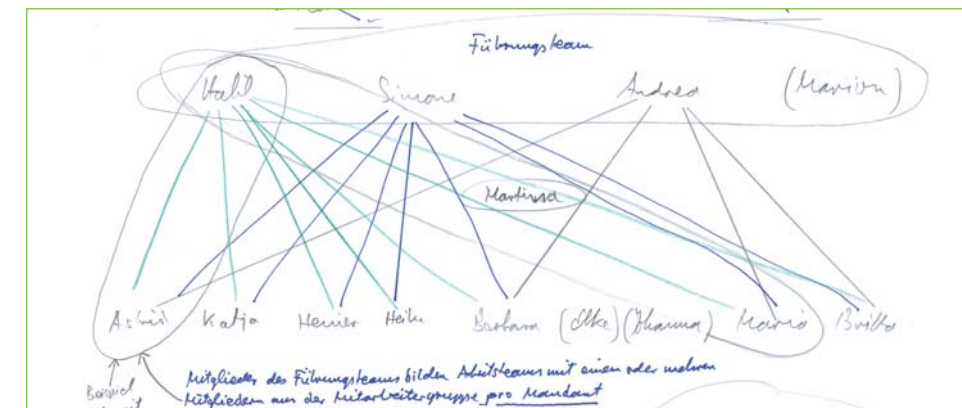 Führungsteam
Halil Simone Andrea (Marion)
Martina
Astrid Katja Heiner Heike Barbara (Elke) (Johanna) Mario Britta
Beispiel
Mitglieder des Führungsteams bilden Arbeitsteams mit einen oder mehren
Mitgliedern aus der Mitarbeitergruppe pro Mandant